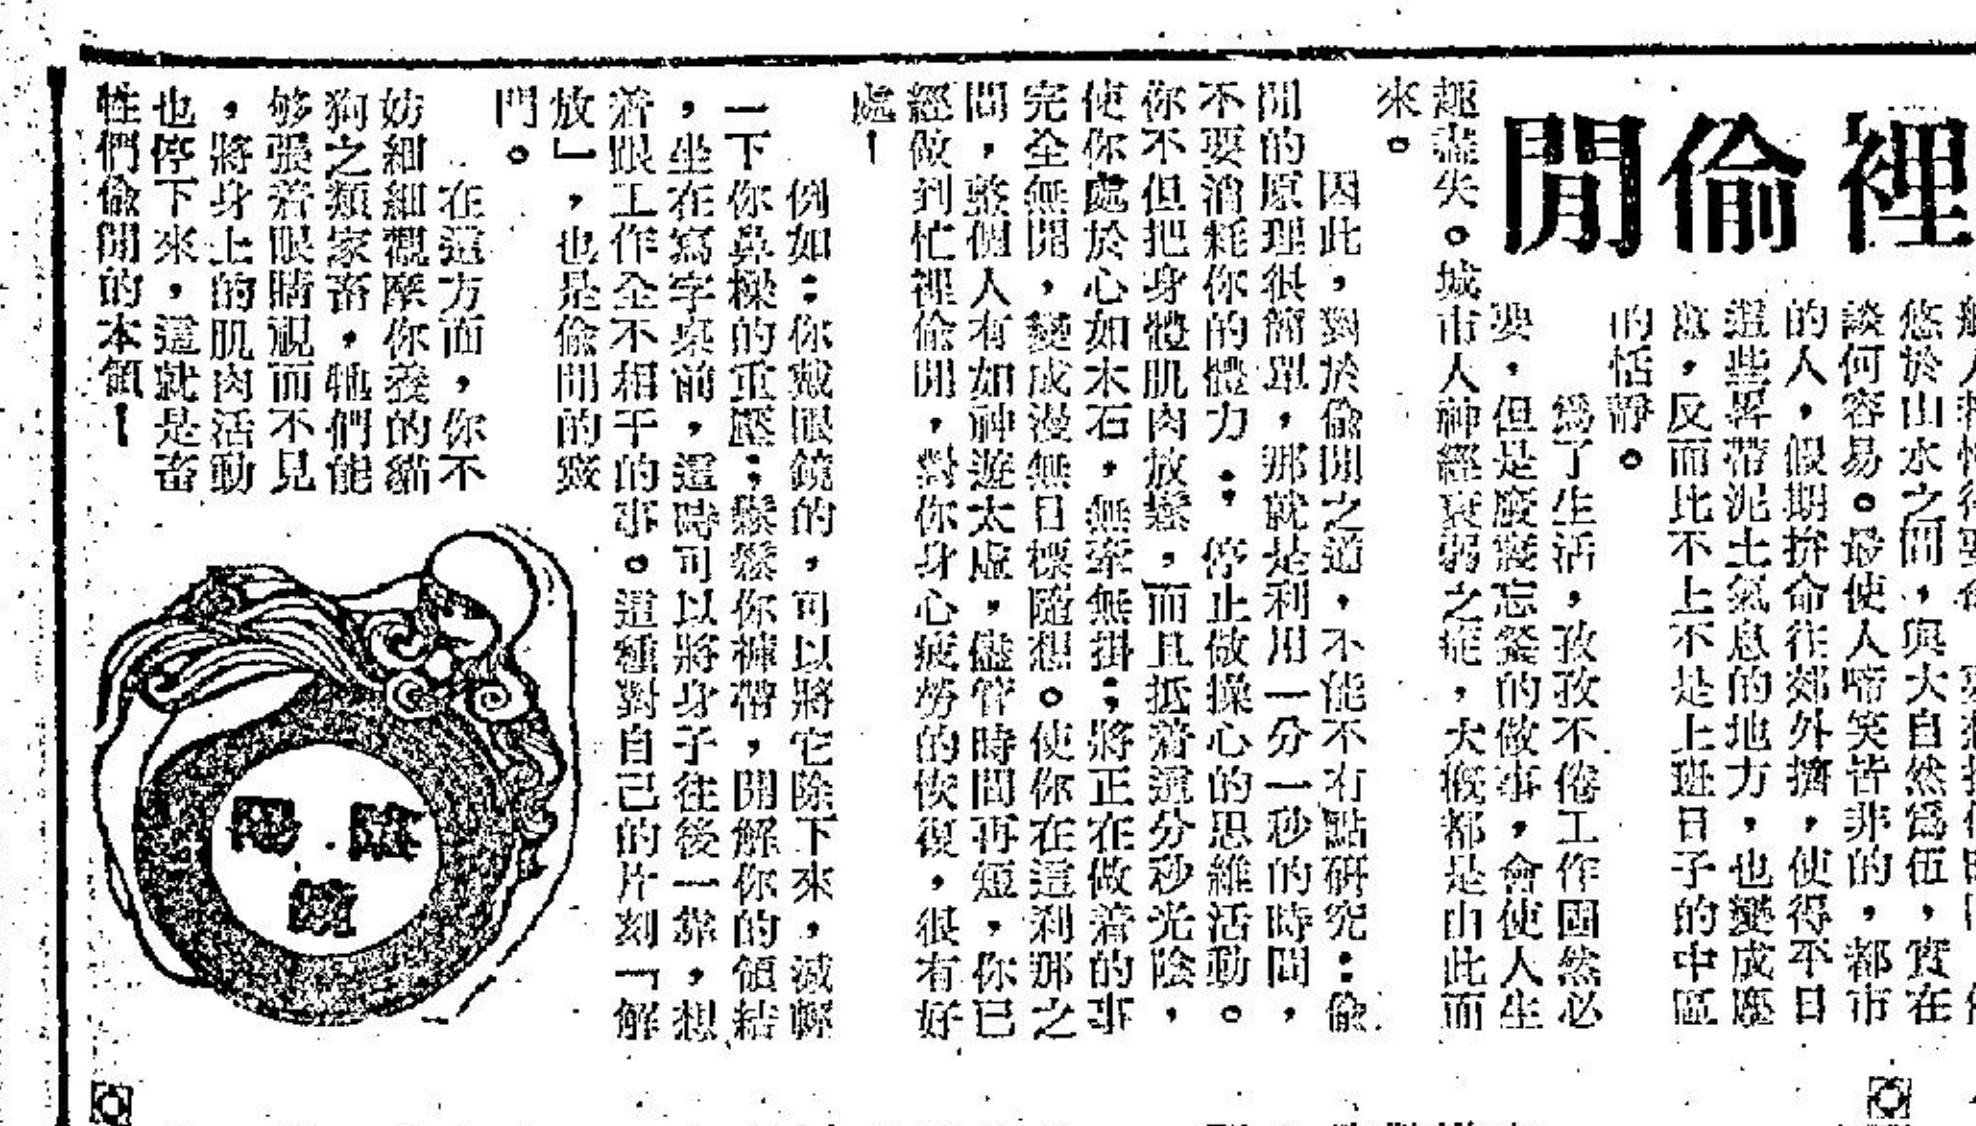 裡偷閒
悠於山水之間，與大自然爲伍，實在
談何容易。最使人啼笑皆非的，都市
的人，假期拚命往郊外擠，使得不日
這些畧帶泥土氣息的地方，也變成塵
意，反而比不上不是上班日子的中區
的恬靜。
爲了生活，孜孜不倦工作固然必
要，但是廢寢忘餐的做事，會使人生
趣盡失。城市人神經衰弱之症，大概都是由此而
來。
因此，對於偷閒之道，不能不有點研究：偷
閒的原理很簡單，那就是利用一分一秒的時間，
不要消耗你的體力：停止做操心的思維活動。
你不但把身體肌肉放鬆，而且抵着這分秒光陰，
使你處於心如木石，無牽無掛；將正在做着的事
完全無開，變成漫無目標隨想。使你在這刹那之
間，整個人有如神遊太虛，儘管時間再短，你已
經做到忙裡偷閒，對你身心疲勞的恢復，很有好
處！
例如：你戴眼鏡的，可以將它除下來，減輕
一下你鼻樑的重壓；鬆鬆你褲帶，開解你的領結
，坐在寫字桌前，這時可以將身子往後一靠，想
着跟工作全不相干的事。這種對自己的片刻「解
放」，也是偷閒的竅
門。
在這方面，你不
妨細細觀摩你養的貓
狗之類家畜，牠們能
够張着眼睛視而不見
，將身上的肌肉活動
也停下來，這就是畜
牲們偷閒的本領！